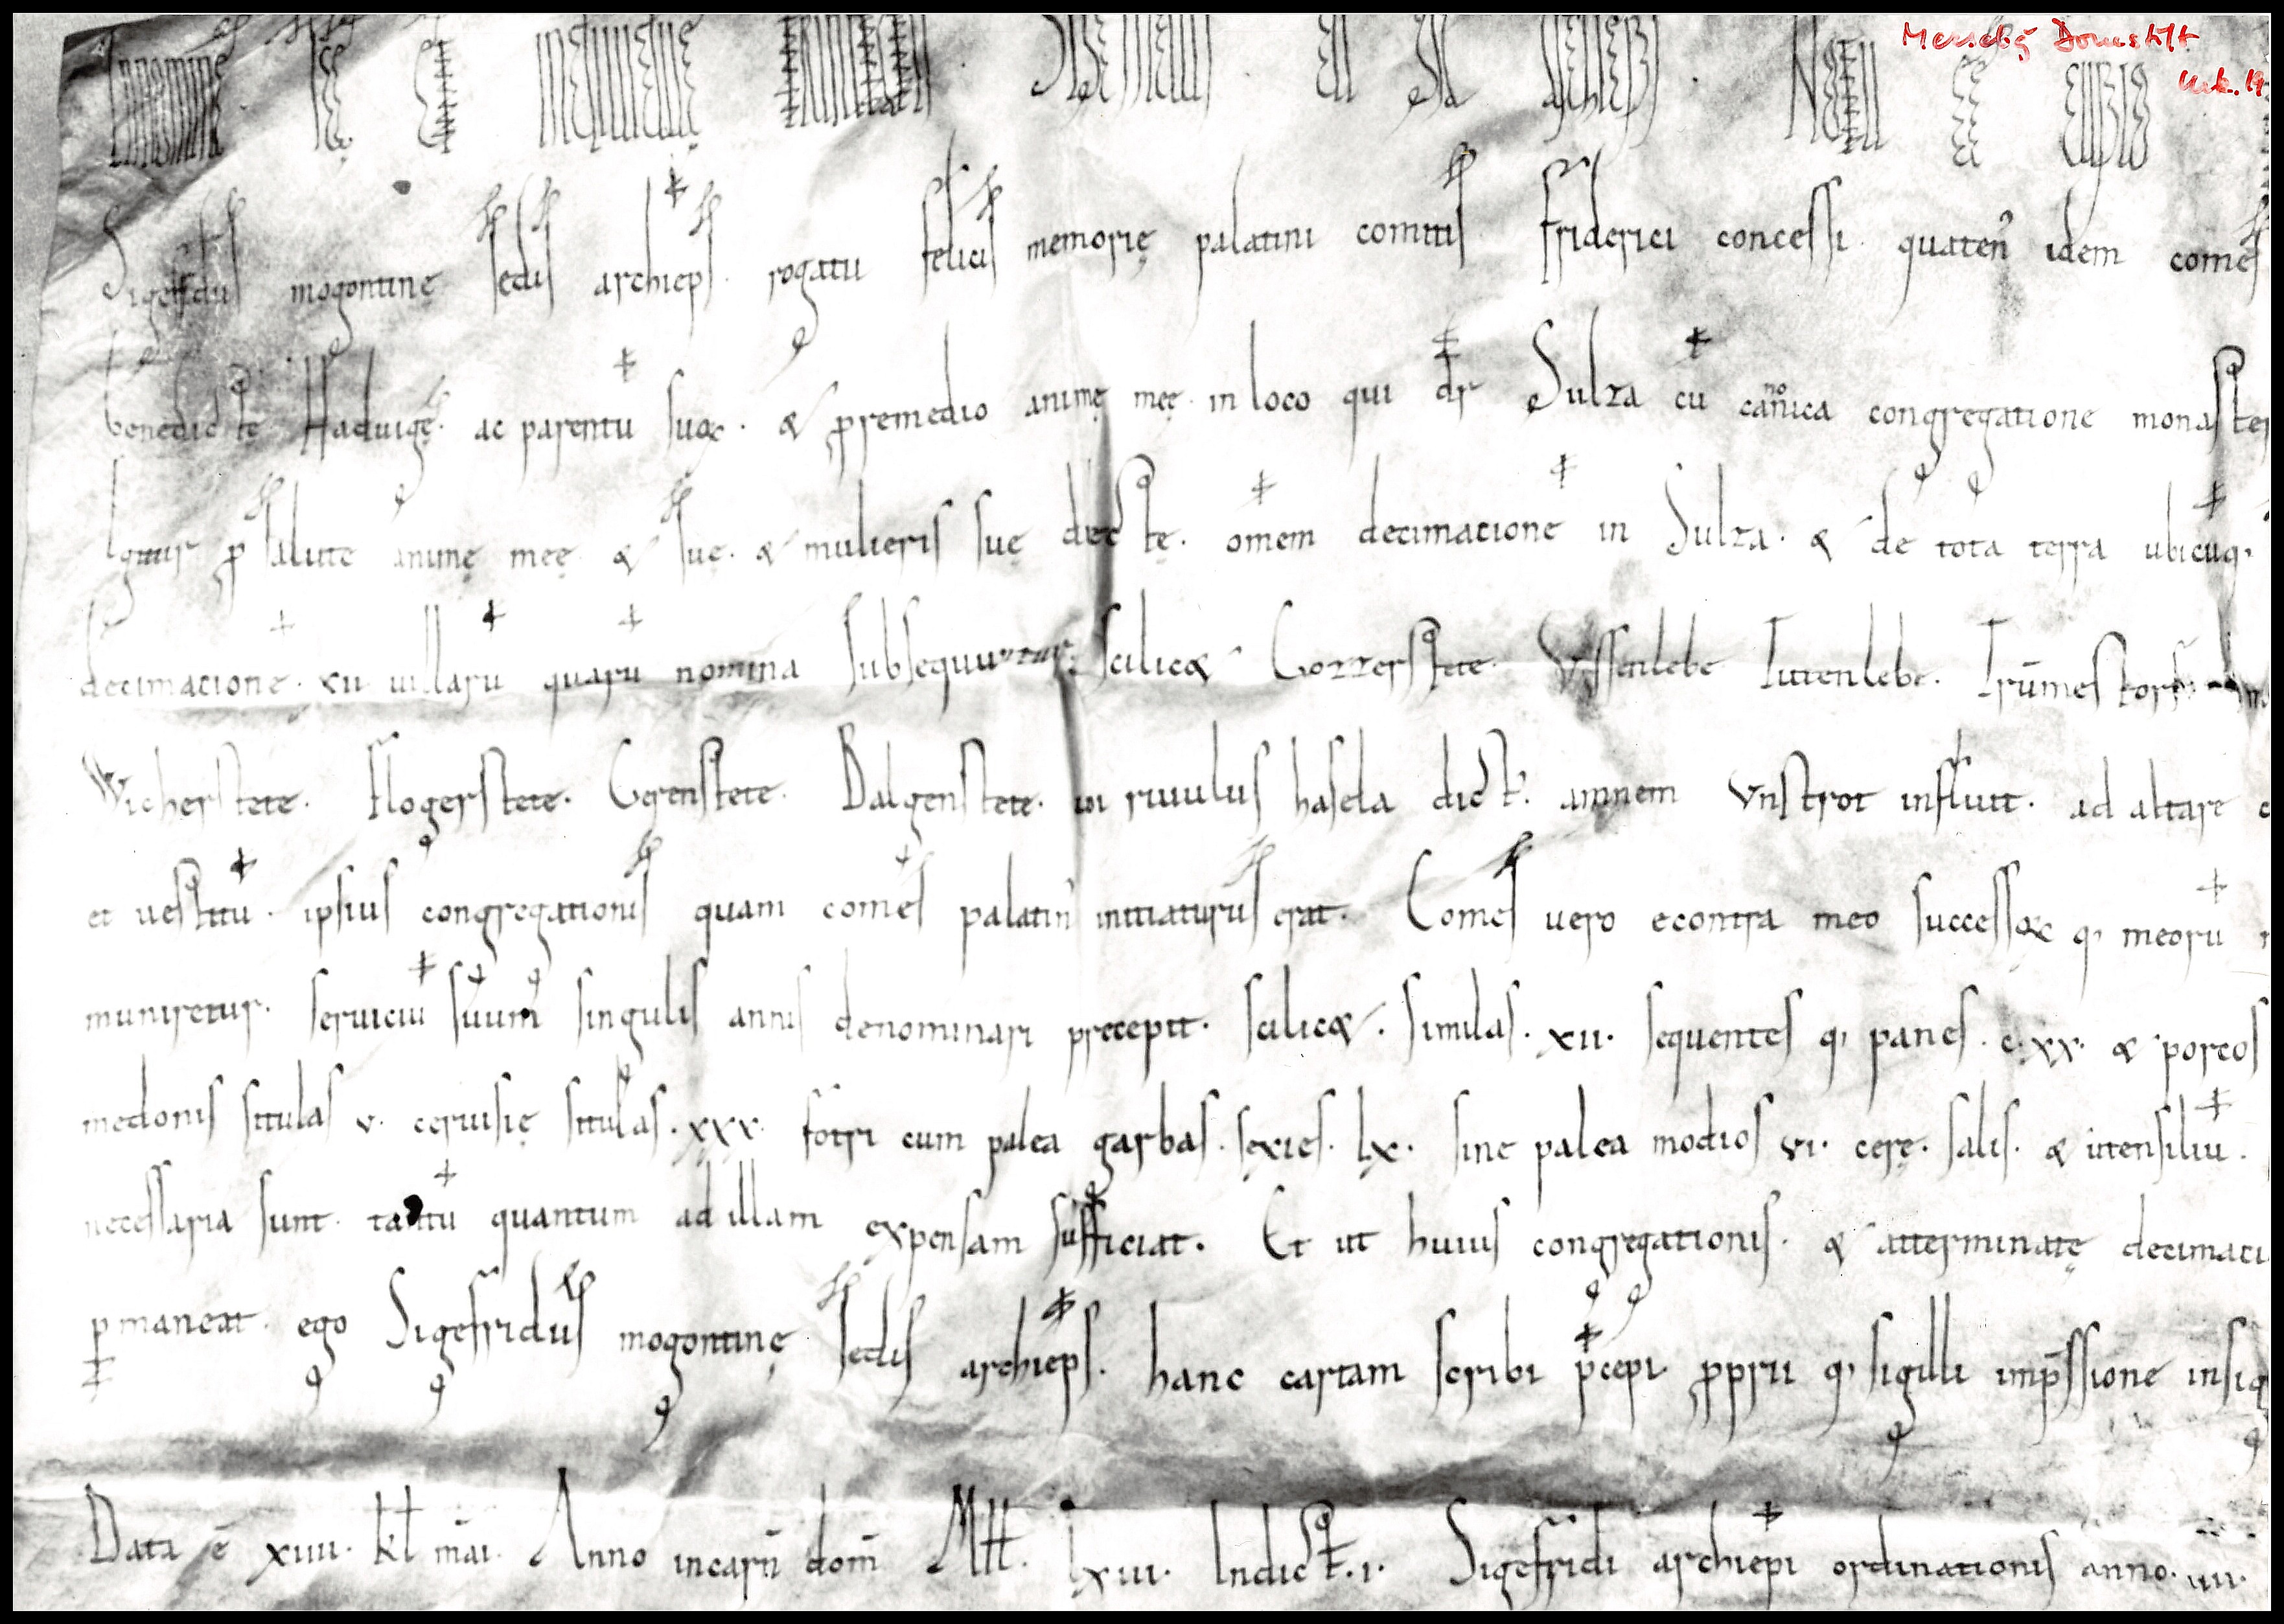 Merseb͡g Domstift
Urk. 19
In nomine sc̄ę et indiuiduę trinitatis . Notū sit
Sigeffridus mogontinę sedis archiep̄s . rogatu felicis memorię palatini comitis friderici concessi . quaten᷒ idem comes
benedictę Hadwigę . ac parentū suoꝝ . & p̱ remedio animę meę . in loco qui dr̄ Sulza cū canonica congregatione monaster
Igitur ꝓ salute animę meę . & suę . & mulieris suę dictę . om̄em decimacionē in Sulza . & de tota terra ubicūq;
decimacionē . xii uillarū quarū nomina subsequuntur . scilic& Gozzerstete . Vssenlebe Iutenlebe . Irūmestorf .
Wicherstete . Flogerstete . Gerenstete . Balgenstete . ubi riuulus hasela dict᷒ . amnem Vnstrot influit . ad altare
et uestitū . ipsius congregationis quam comes palatin᷒ initiaturus erat . Comes uero econtra meo successoꝝ q; meorū
muniretur . seruiciū suum singulis annis denominari precepit . scilic& . similas . xii . sequentes q; panes . c . xx . & porcos
medonis situlas v . ceruisię situlas . xxx . fotri cum palea garbas . sexies . lx . sine palea modios vi . cerę . salis . & utensiliū .
necessaria sunt . tantū quantum ad illam expensam sufficiat . Et ut huius congregationis . & atterminatę decimati
ꝑmaneat . ego Sigeffridus mogontinę sedis archiep̄s . hanc cartam scribi p̄cepi ꝓprii q; sigilli imp̄ssione insig
Data ē xiiii . kł mai . Anno incarn̄ dom̄ Mił . lxiii . Indict̄ . i . Sigeffridi archiep̄i ordinationis anno . iiii .